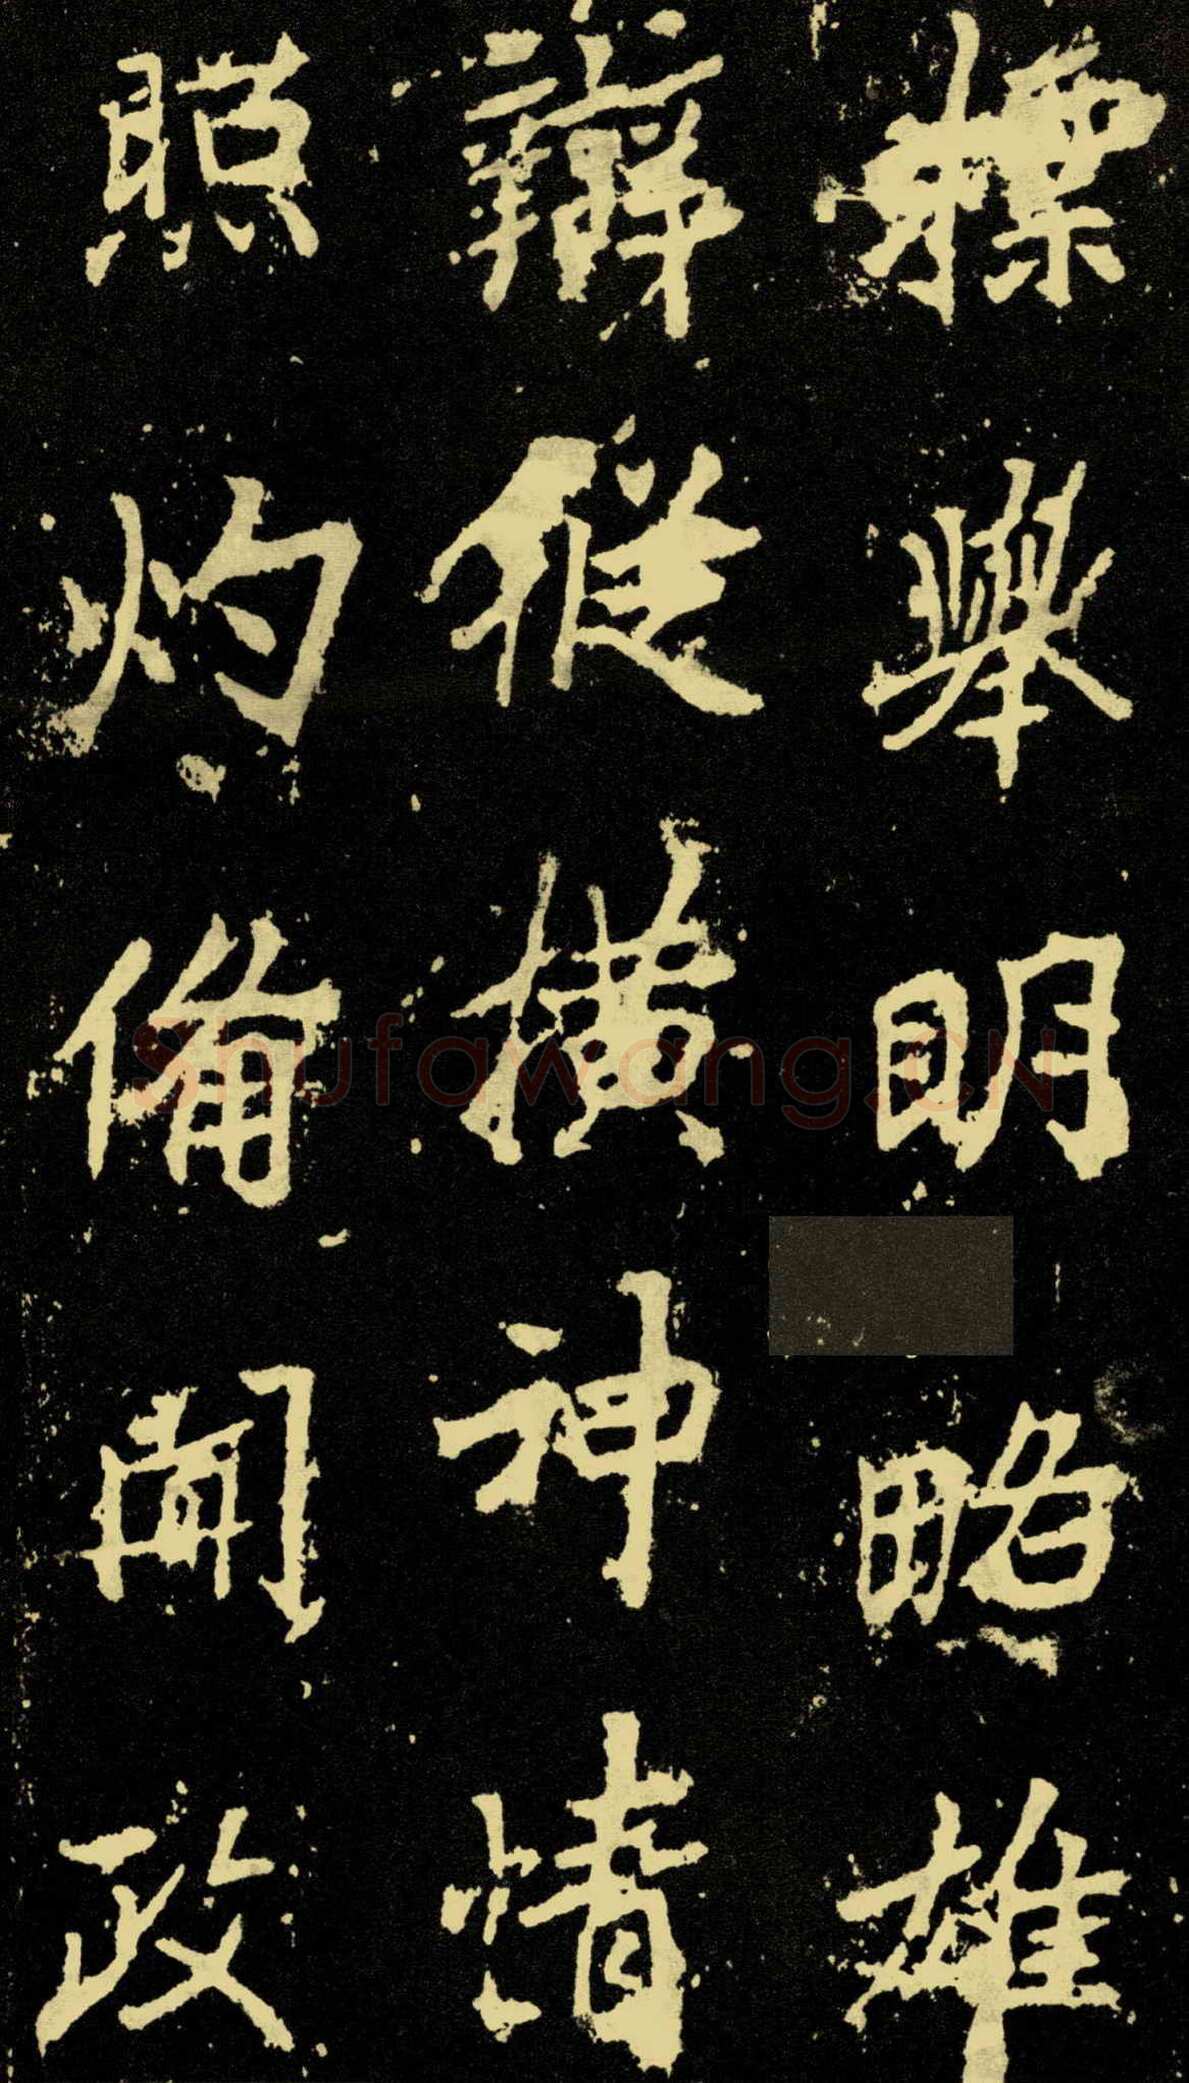 標舉明略雄
辯縱橫神情
照灼備聞政
Shufawang.CN